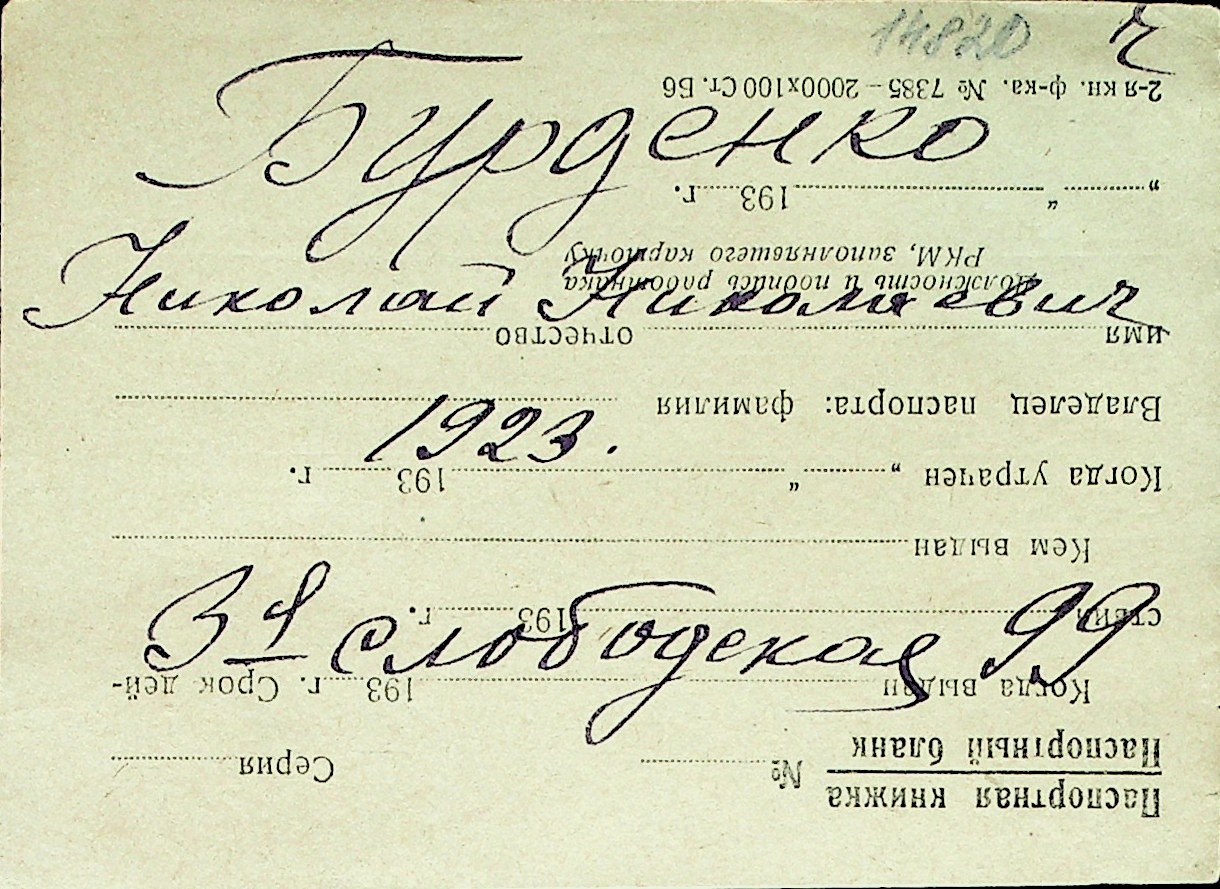 14820 ч
Бурденко
Николай Николаевич
1923.
3я слободская 99
Паспортная книжка
Паспортный бланк
№ Серия
Когда выдан 193 г. Срок дей-
ствия 193 г.
Кем выдан
Когда утрачен „ “ 193 г.
Владелец паспорта: фамилия
имя отчество
Должность и подпись работника
РКМ, заполнявшего карточку
„ “ 193 г.
2-я кн. ф-ка. № 7385 — 2000х100 Ст. Б6